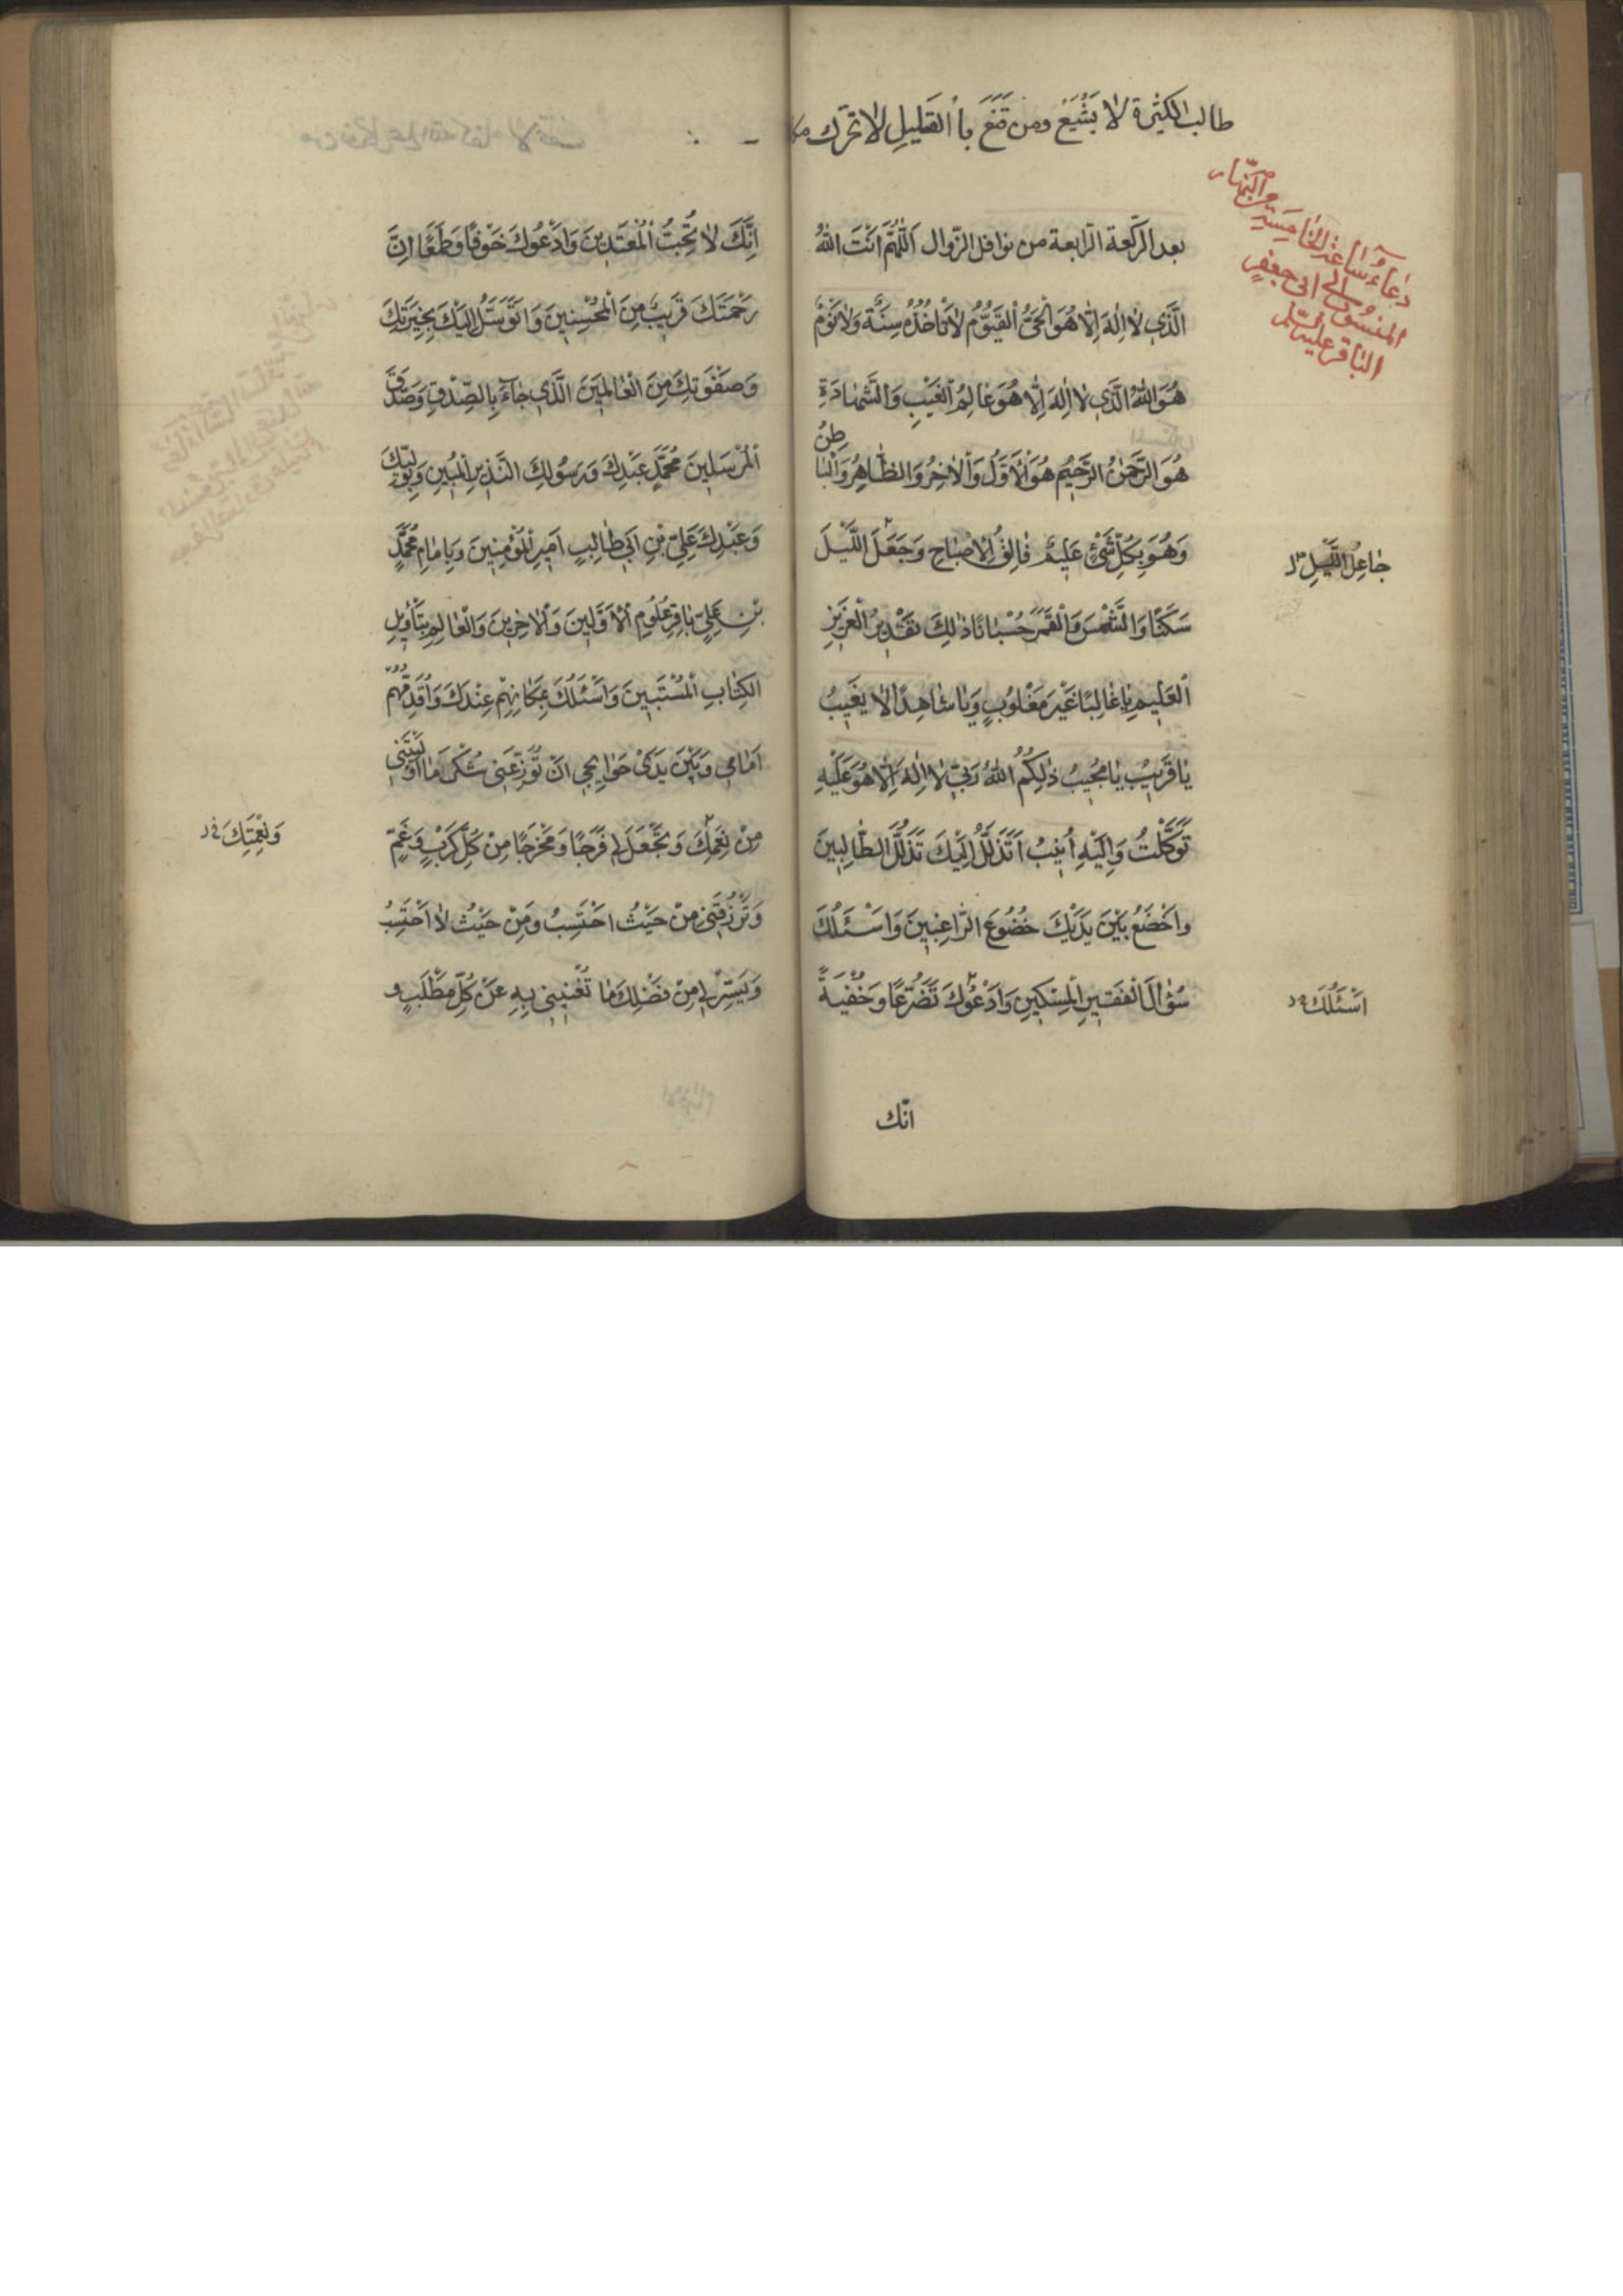 طالب الكثيرة لا يشبع ومن قنع بأالقليل لا ترك
دعاء ساعة الخامسة من النهار
المنسوب الى ابى جعفر
الباقر عليه السلم
بعد الركعة الرّابعة من نوافل الزّوال اَللّٰهُمَّ اَنْتَ اللّٰهُ
الَّذى لا اِلٰهَ اِلّا هُوَ الْحَىُّ الْقَيُّومُ لا تَأخُذُهُ سِنَةٌ وَلا نَوْمٌ
هُوَ اللّٰهُ الَّذى لا اِلٰهَ اِلّا هُوَ عالِمُ الْغَيْبِ وَالشَّهادَةِ
هُوَ الرَّحْمٰنُ الرَّحيمُ هُوَ الْاَوَّلُ وَالْاٰخِرُ وَالظّاهِرُ وَالْباطِنُ
وَهُوَ بِكُلِّ شَىْءٍ عَليمٌ فالِقُ الْاِصْباحِ وَجَعَلَ اللَّيْلَ
جاعِلُ اللَّيْلِ
سَكَنًا وَالشَّمْسَ وَالْقَمَرَ حُسْبانًا ذٰلِكَ تَقْديرُ الْعَزيزِ
الْعَليمِ يا غالِبًا غَيْرَ مَغْلُوبٍ وَيا شاهِدًا لا يَغيبُ
يا قَريبُ يا مُجيبُ ذٰلِكُمُ اللّٰهُ رَبّى لا اِلٰهَ اِلّا هُوَ عَلَيْهِ
تَوَكَّلْتُ وَاِلَيْهِ اُنيبُ اَتَذَلَّلُ اِلَيْكَ تَذَلُّلَ الطّالِبينَ
وَاخْضَعُ بَيْنَ يَدَيْكَ خُضُوعَ الرّاغِبينَ وَاَسْئَلُكَ
سُؤالَ الْفَقيرِ الْمِسْكينِ وَاَدْعُوكَ تَضَرُّعًا وَخُفْيَةً
اَسْئَلُكَ
انّك
اِنَّكَ لا تُحِبُّ الْمُعْتَدينَ وَاَدْعُوكَ خَوْفًا وَطَمَعًا اِنَّ
رَحْمَتَكَ قَريبٌ مِنَ الْمُحْسِنينَ وَاَتَوَسَّلُ اِلَيْكَ بِخِيَرَتِكَ
وَصَفْوَتِكَ مِنَ الْعالَمينَ الَّذى جاءَ بِالصِّدْقِ وَصَدَّقَ
الْمُرْسَلينَ مُحَمَّدٍ عَبْدِكَ وَرَسُولِكَ النَّذيرِ الْمُبينِ وَبِوَلِيِّكَ
وَعَبْدِكَ عَلِىِّ بْنِ اَبى طالِبٍ اَميرِ الْمُؤْمِنينَ وَبِاِمامِ مُحَمَّدِ
بْنِ عَلِىٍّ باقِرِ عُلُومِ الْاَوَّلينَ وَالْاٰخِرينَ وَالْعالِمِ بِتَأْويلِ
الكِتابِ الْمُسْتَبينَ وَاَسْئَلُكَ بِمَكانِهِمْ عِنْدَكَ وَاُقَدِّمُهُمْ
اَمامى وَبَيْنَ يَدَىْ حَوائِجى اَنْ تُوزِعَنى شُكْرَ ما اَوْلَيْتَنى
مِنْ نِعَمِكَ وَتَجْعَلَ لى فَرَجًا وَمَخْرَجًا مِنْ كُلِّ كَرْبٍ وَغَمٍّ
وَنِعْمَتِكَ
وَتَرْزُقَنى مِنْ حَيْثُ اَحْتَسِبُ وَمِنْ حَيْثُ لا اَحْتَسِبُ
وَيَسِّرْ لى مِنْ فَضْلِكَ ما تُغْنينى بِهِ عَنْ كُلِّ مَطْلَبٍ و